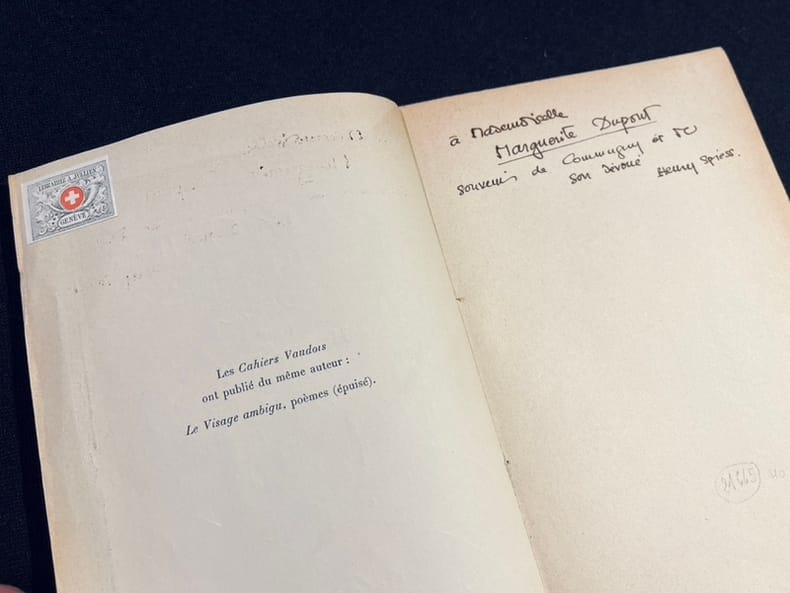 LIBRAIRIE A. JULLIEN
GENÈVE
Les Cahiers Vaudois
ont publié du même auteur :
Le Visage ambigu, poèmes (épuisé).
à Mademoiselle
Marguerite Dupont
souvenir de Commugny et
son dévoué Henry Spiess.